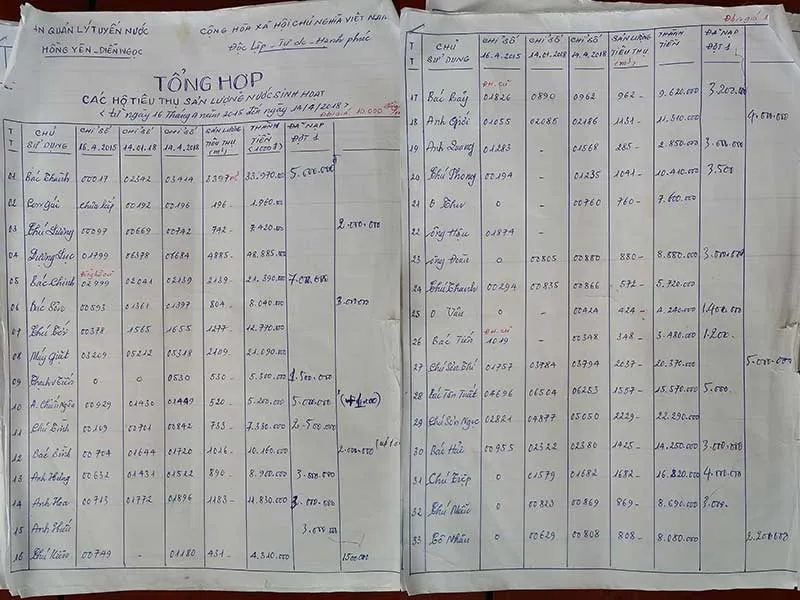 AN QUẢN LÝ TUYẾN NƯỚC
CỘNG HÒA XÃ HỘI CHỦ NGHĨA VIỆT NAM
HỒNG YÊN - DIỄN NGỌC
Độc lập - Tự do - Hạnh phúc
TỔNG HỢP
CÁC HỘ TIÊU THỤ SẢN LƯỢNG NƯỚC SINH HOẠT
< từ ngày 16 tháng 4 năm 2015 đến ngày 14/4/2018 >
Đơn giá: 10.000
TT CHỦ SỬ DỤNG CHỈ SỐ 16.4.2015 CHỈ SỐ 14.01.18 CHỈ SỐ 14.4.2018 SẢN LƯỢNG TIÊU THỤ (m³) THÀNH TIỀN ĐÃ NẠP ĐỢT 1
01 Bác Thanh 00017 02342 03414 3397 33.970.000 5.000.000
02 00192 00196 196 - 1.960.000
03 Chú Dương 00097 00669 00742 742 - 7.420.000 2.000.000
04 01799 06378 06684 4885 - 48.885.000
05 Bác Chinh 02999 02041 02139 2139 - 21.390.000 7.000.000
06 00593 01361 01397 804 - 8.040.000 3.000.000
07 00378 1565 1655 1277 - 12.770.000
08 Máy Giặt 03209 05212 05318 2109 - 21.090.000
09 0 0 0530 530 - 5.300.000 1.500.000
10 00929 01430 01449 520 - 5.200.000 5.000.000
11 Chú Bình 00109 00701 00842 733 - 7.330.000 2.500.000
12 Bác Bình 00704 01644 01720 1016 - 10.160.000 2.000.000
13 Anh Hưng 00632 01431 01522 890 - 8.900.000 3.000.000
14 Anh Hoa 00713 01772 01896 1183 - 11.830.000 3.000.000
15 Anh 3.000.000
16 00749 - 01180 431 - 4.310.000 1500.000
Đơn giá 1
TT CHỦ SỬ DỤNG CHỈ SỐ 16.4.2015 CHỈ SỐ 14.01.2018 CHỈ SỐ 14.4.2018 SẢN LƯỢNG TIÊU THỤ (m³) THÀNH TIỀN ĐÃ NẠP ĐỢT 1
ĐH. cũ
17 Bác Bảy 01826 0890 0962 962 - 9.620.000 3.200.000
18 Anh 01055 02085 02186 1131 - 11.310.000 4.000.000
19 Anh 01283 - 01568 285 - 2.850.000
20 Chú Phong 00194 - 01235 1041 - 10.410.000 3.500
21 0 - 00760 760 - 7.600.000
22 Ông Hậu 01874 -
23 Ông Đoàn 0 00805 00880 880 - 8.880.000 3.000.000
24 Chú Thanh 00294 00835 00866 572 - 5.720.000
25 O. Vân 0 - 00424 424 - 4.240.000 1.400.000
ĐH. cũ
26 Bác Tiến 1019 - 00348 348 - 3.480.000 1.200
27 01757 03784 03794 2037 - 20.370.000 5.000.000
28 04696 06504 06253 1557 - 15.570.000 5.000
29 Chú Sơn Ngọc 02821 04877 05050 2229 - 22.290.000
30 Bác Hải 00955 02322 02380 1425 - 14.250.000 3.000.000
31 Chú Điệp 0 01579 01682 1682 - 16.820.000 4.000.000
32 0 00823 00869 869 - 8.690.000
33 Cô Nhâm 0 00629 00808 808 - 8.080.000 2.200.000